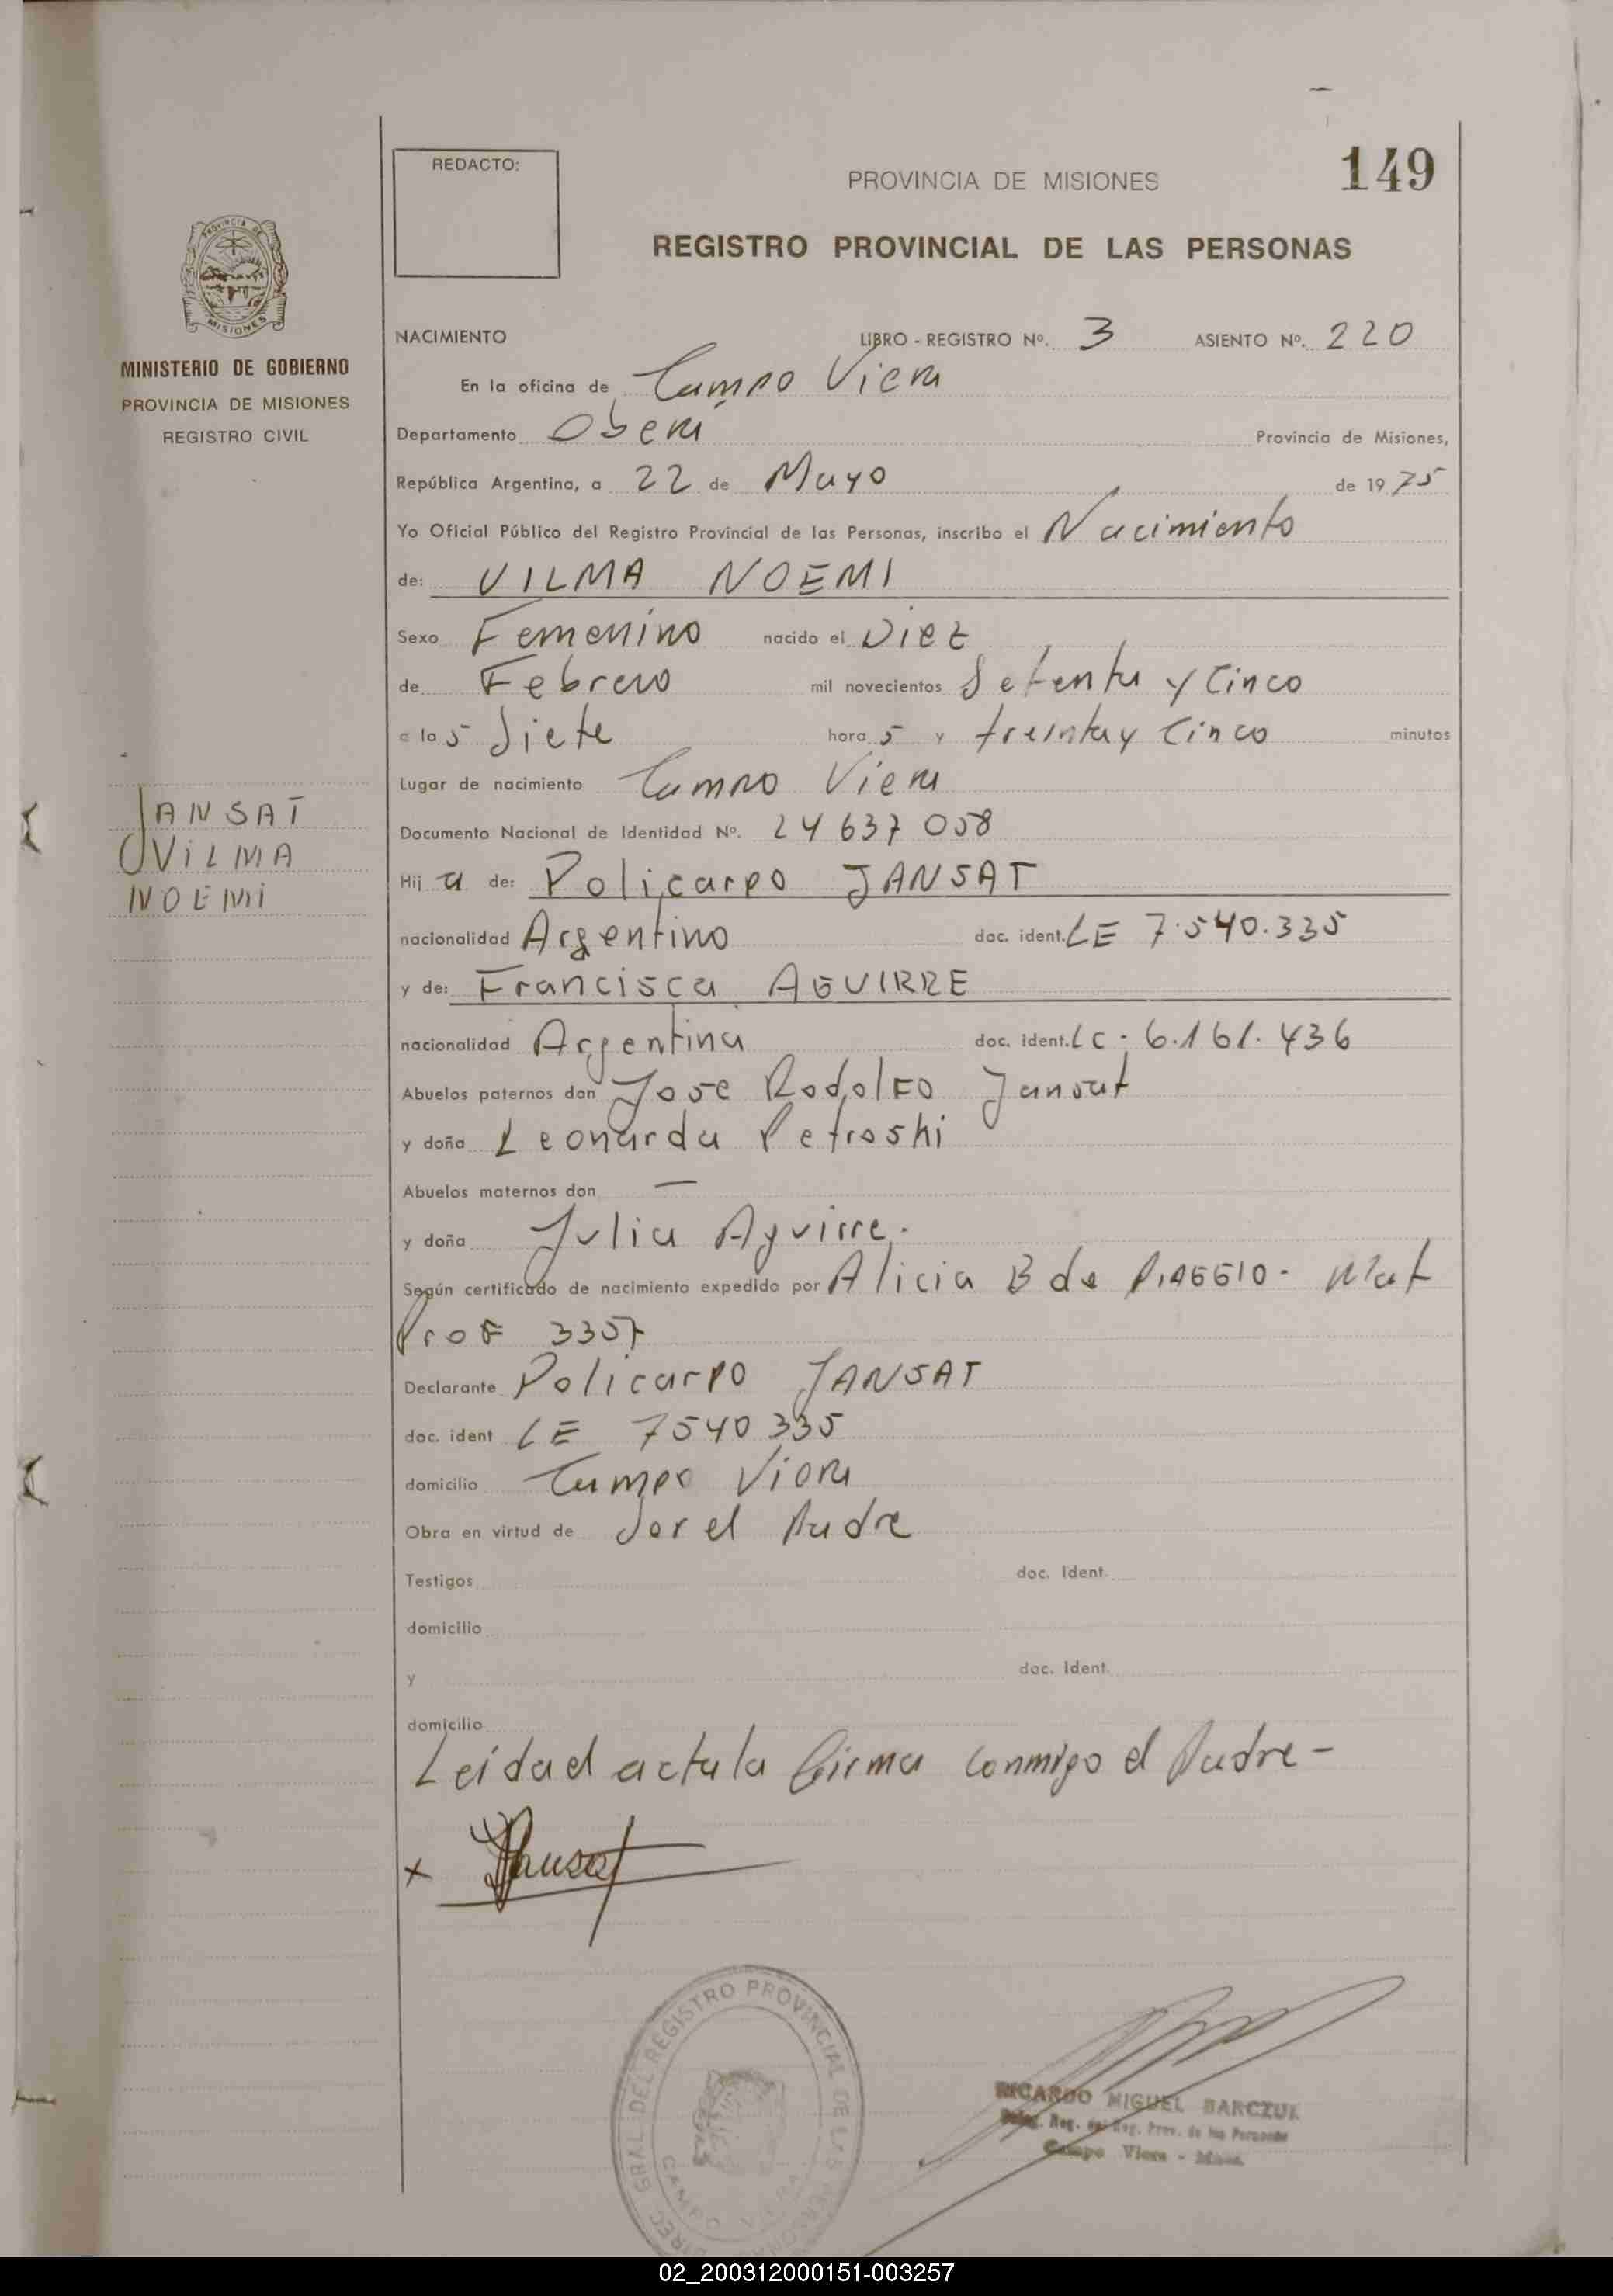 149
REDACTO:
PROVINCIA DE MISIONES
REGISTRO PROVINCIAL DE LAS PERSONAS
PROVINCIA DE
MISIONES
MINISTERIO DE GOBIERNO
PROVINCIA DE MISIONES
REGISTRO CIVIL
NACIMIENTO LIBRO - REGISTRO Nº. 3 ASIENTO Nº. 220
En la oficina de Campo Viera
Departamento Oberá Provincia de Misiones,
República Argentina, a 22 de Mayo de 1975
Yo Oficial Público del Registro Provincial de las Personas, inscribo el Nacimiento
de: VILMA NOEMI
Sexo Femenino nacido el Diez
de Febrero mil novecientos Setenta y Cinco
a las Siete horas y treinta y Cinco minutos
Lugar de nacimiento Campo Viera
JANSAT
VILMA
NOEMI
Documento Nacional de Identidad Nº. 24 637 058
Hija de: Policarpo JANSAT
nacionalidad Argentino doc. ident. LE 7.540.335
y de: Francisca AGUIRRE
nacionalidad Argentina doc. ident. LC. 6.161.436
Abuelos paternos don Jose Rodolfo Jansat
y doña Leonarda Petroski
Abuelos maternos don —
y doña Julia Aguirre.
Según certificado de nacimiento expedido por Alicia B de PIAGGIO - Mat
Prof 3357
Declarante Policarpo JANSAT
doc. ident LE 7540335
domicilio Campo Viera
Obra en virtud de Ser el Padre
Testigos doc. Ident.
domicilio
y doc. Ident.
domicilio
Leida el acta la firma conmigo el Padre -
x Jansat
DIREC. GRAL. DEL REGISTRO PROVINCIAL DE LAS PERSONAS
CAMPO VIERA
RICARDO MIGUEL BARCZUK
Reg. del Reg. Prov. de las Personas
Campo Viera - Mnes.
02_200312000151-003257